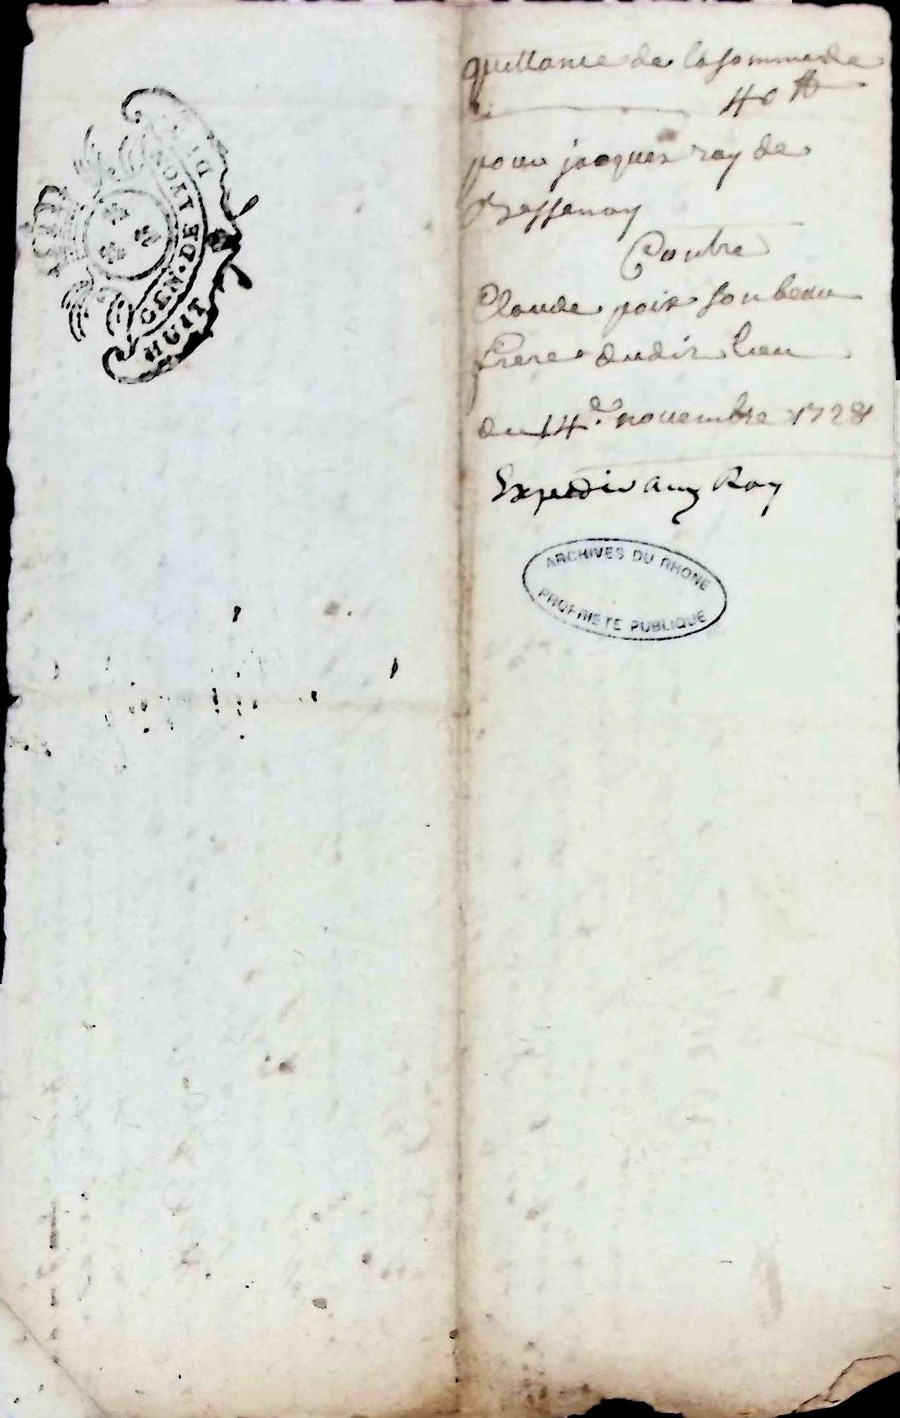 GEN. DE LYON
HUIT DEN.
quittance de la somme de
40 ₶
pour jacques ray de
Bessenay
Contre
Claude poix son beau
frere dudit lieu
du 14.e novembre 1728
Expedié aud Ray
ARCHIVES DU RHONE
PROPRIETE PUBLIQUE